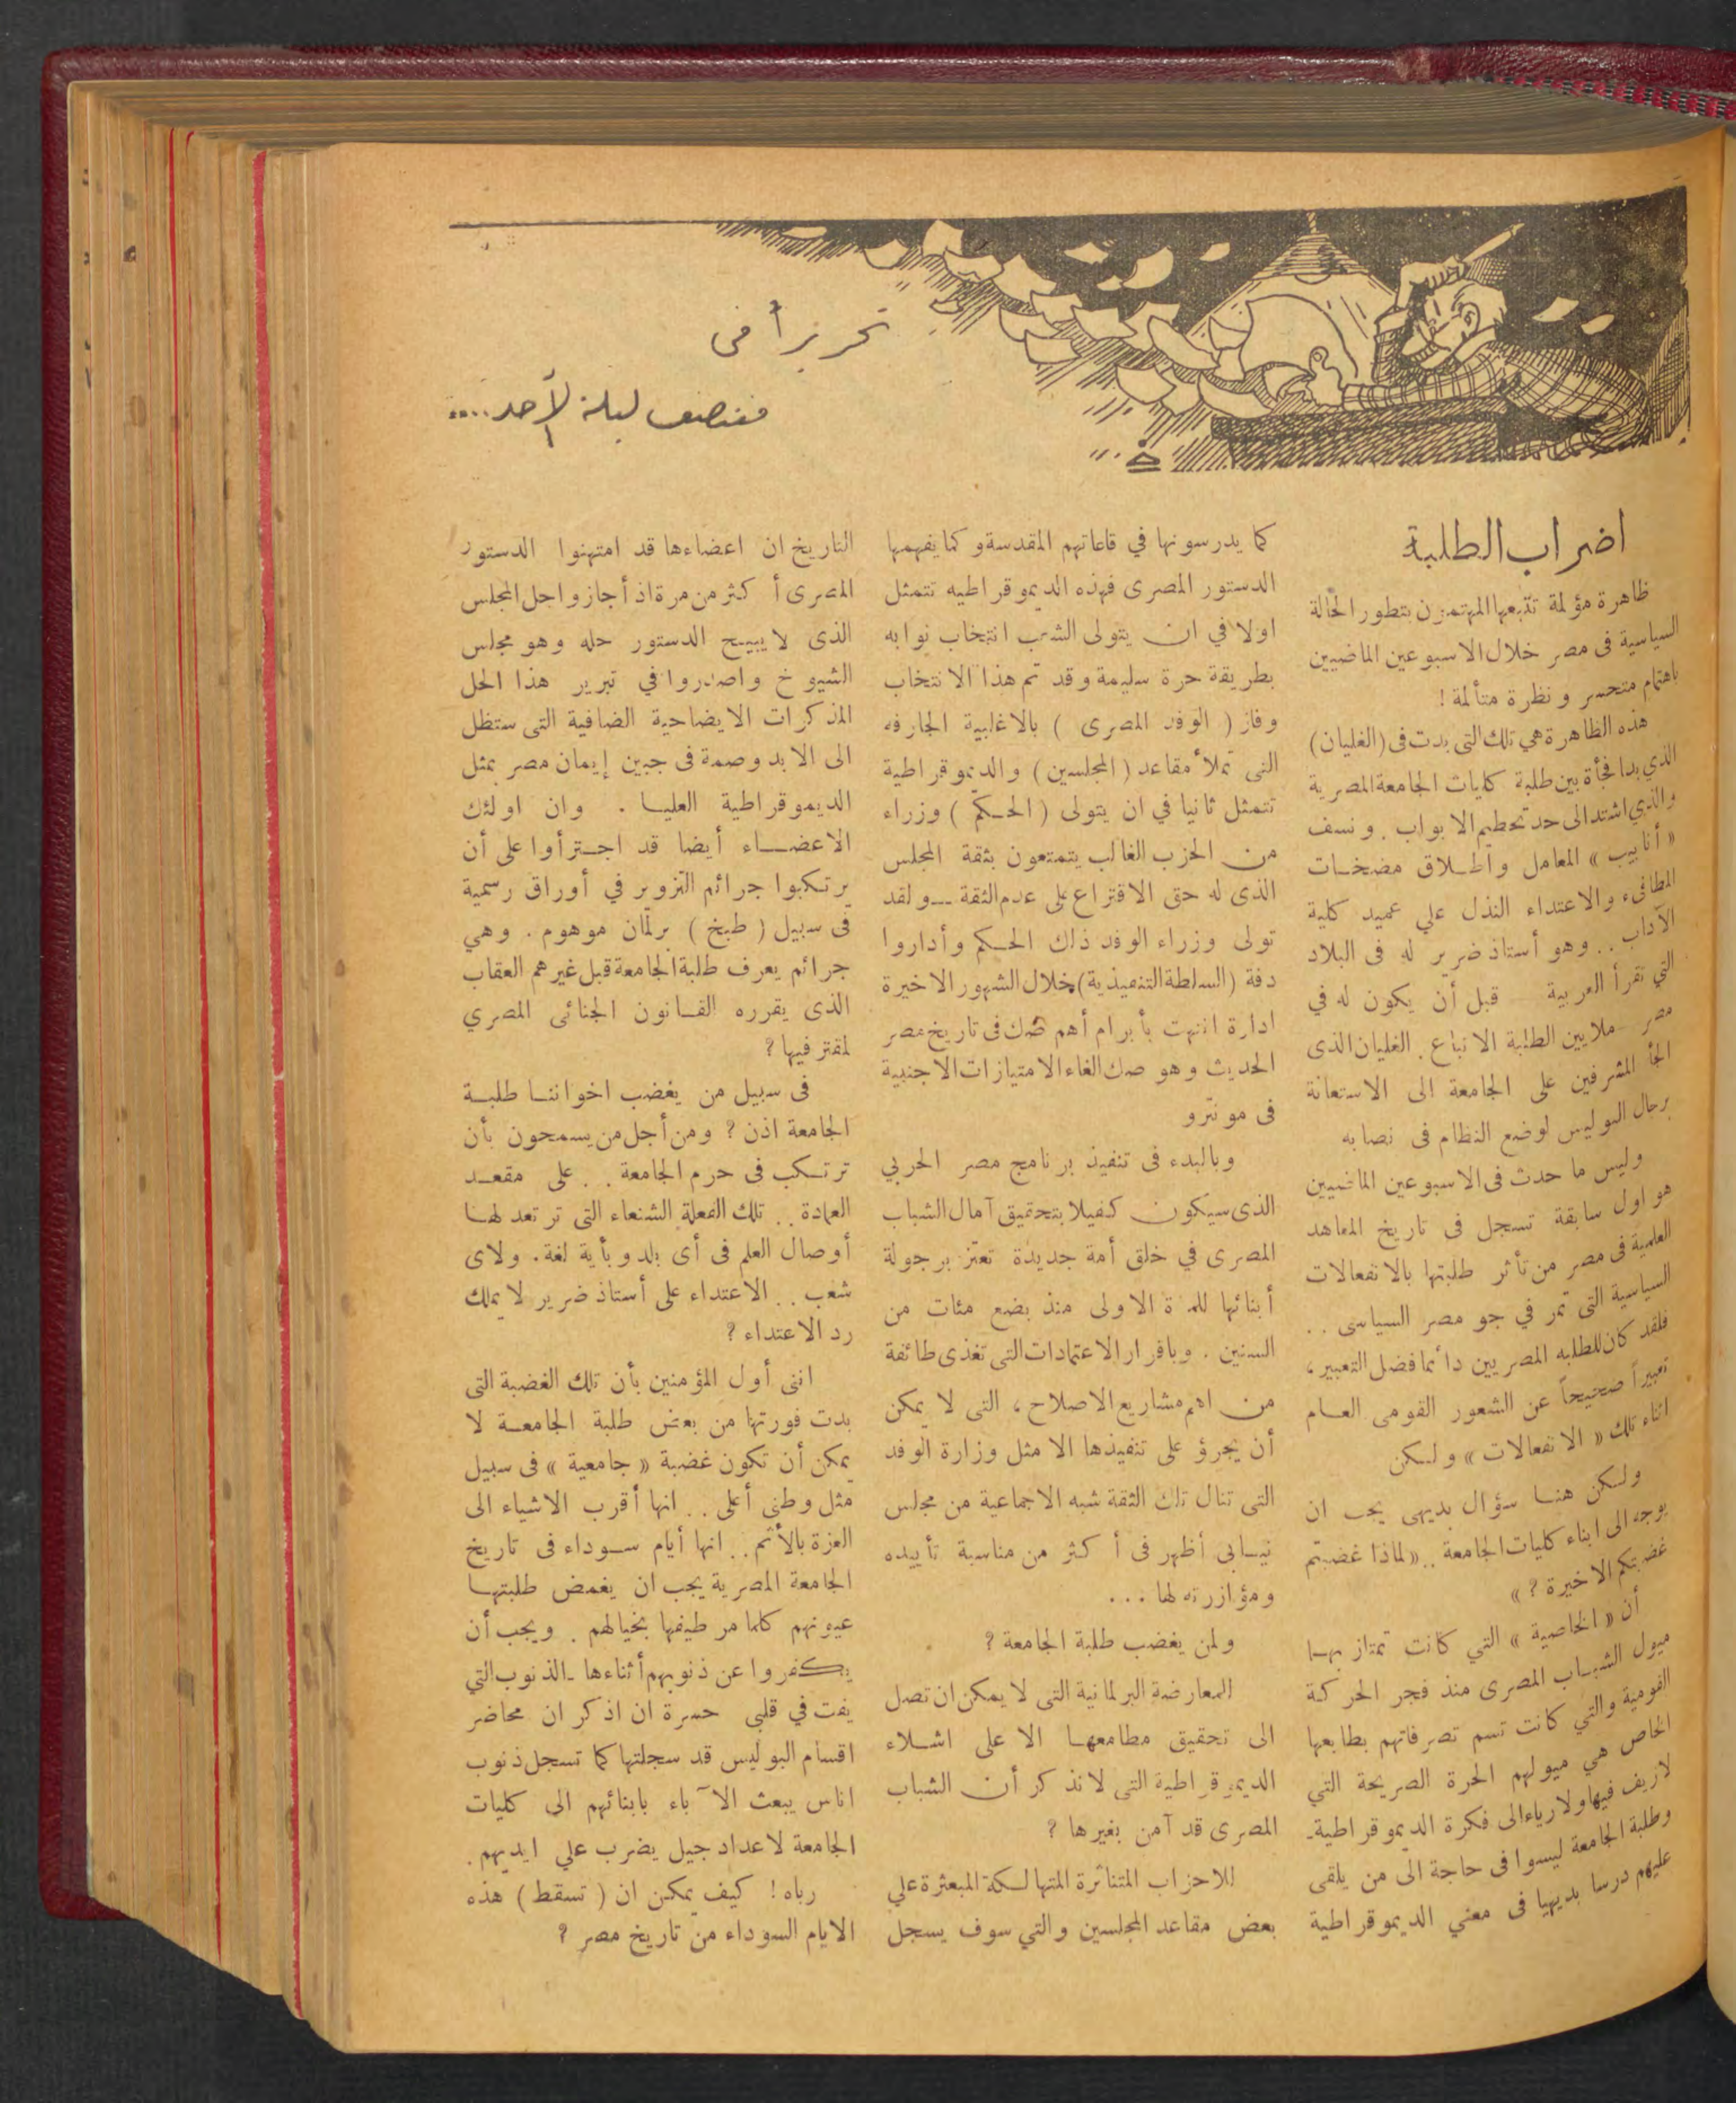 تحريراً فى
منتصف ليلة الأحد....
اضراب الطلبة
ظاهرة مؤلمة تتبعها المهتمون بتطور الحالة
السياسية فى مصر خلال الاسبوعين الماضيين
باهتمام متحسر ونظرة متألمة !
هذه الظاهرة هي تلك التى بدت فى (الغليان)
الذي بدا فجأة بين طلبة كليات الجامعة المصرية
والذي اشتد الى حد تحطيم الابواب . ونسف
« أنابيب » المعامل واطلاق مضخات
المطافىء والاعتداء النذل علي عميد كلية
الآداب . . وهو أستاذ ضرير له فى البلاد
التي تقرأ العربية – قبل أن يكون له في
مصر – ملايين الطلبة الاتباع . الغليان الذى
الجأ المشرفين على الجامعة الى الاستعانة
برجال البوليس لوضع النظام فى نصابه
وليس ما حدث فى الاسبوعين الماضيين
هو اول سابقة تسجل فى تاريخ المعاهد
العلمية فى مصر من تأثر طلبتها بالانفعالات
السياسية التى تمر في جو مصر السياسى . .
فلقد كان للطلبه المصريين دائما فضل التعبير ،
تعبيراً صحيحاً عن الشعور القومى العام
اثناء تلك « الانفعالات » ولكن
ولكن هنا سؤال بديهى يجب ان
يوجه الى ابناء كليات الجامعة .. « لماذا غضبتم
غضبتكم الاخيرة ? »
أن « الخاصية » التي كانت تمتاز بها
ميول الشباب المصرى منذ فجر الحركة
القومية والتي كانت تسم تصرفاتهم بطابعها
الخاص هي ميولهم الحرة الصريحة التي
لازيف فيها ولا رياء الى فكرة الديموقراطية .
وطلبة الجامعة ليسوا فى حاجة الى من يلقى
عليهم درسا بديهيا فى معني الديموقراطية
كما يدرسونها في قاعاتهم المقدسة وكما يفهمها
الدستور المصرى فهذه الديموقراطيه تتمثل
اولا في ان يتولى الشعب انتخاب نوابه
بطريقة حرة سليمة وقد تم هذا الانتخاب
وفاز ( الوفد المصرى ) بالاغلبية الجارفه
التى تملأ مقاعد ( المجلسين ) والديموقراطية
تتمثل ثانيا في ان يتولى ( الحكم ) وزراء
من الحزب الغالب يتمتعون بثقة المجلس
الذى له حق الاقتراع على عدم الثقة — ولقد
تولى وزراء الوفد ذلك الحكم وأداروا
دفة (السلطة التنفيذية) خلال الشهور الاخيرة
ادارة انتهت بأبرام أهم صك فى تاريخ مصر
الحديث وهو صك الغاء الامتيازات الاجنبية
فى مونترو
وبالبدء فى تنفيذ برنامج مصر الحربي
الذى سيكون كفيلا بتحقيق آمال الشباب
المصرى في خلق أمة جديدة تعتز برجولة
أبنائها للمرة الاولى منذ بضع مئات من
السنين . وباقرار الاعتمادات التى تغذى طائفة
من اهم مشاريع الاصلاح ، التى لا يمكن
أن يجرؤ على تنفيذها الا مثل وزارة الوفد
التى تنال تلك الثقة شبه الاجماعية من مجلس
نيابى أظهر فى أكثر من مناسبة تأييده
ومؤازرته لها . . .
ولمن يغضب طلبة الجامعة ?
المعارضة البرلمانية التى لا يمكن ان تصل
الى تحقيق مطامعها الا على اشلاء
الديموقراطية التى لا نذكر أن الشباب
المصرى قد آمن بغيرها ?
للاحزاب المتناثرة المتهالكة المبعثرة علي
بعض مقاعد المجلسين والتي سوف يسجل
التاريخ ان اعضاءها قد امتهنوا الدستور
المصرى أكثر من مرة اذ أجازوا حل المجلس
الذى لا يبيح الدستور حله وهو مجلس
الشيوخ واصدروا في تبرير هذا الحل
المذكرات الايضاحية الضافية التى ستظل
الى الابد وصمة فى جبين إيمان مصر بمثل
الديموقراطية العليا . وان اولئك
الاعضاء أيضا قد اجترأوا على أن
يرتكبوا جرائم التزوير في أوراق رسمية
فى سبيل ( طبخ ) برلمان موهوم . وهي
جرائم يعرف طلبة الجامعة قبل غيرهم العقاب
الذى يقرره القانون الجنائى المصري
لمقترفيها ?
فى سبيل من يغضب اخواننا طلبة
الجامعة اذن ? ومن أجل من يسمحون بأن
ترتكب فى حرم الجامعة . . على مقعد
العمادة . . تلك الفعلة الشنعاء التى ترتعد لها
أوصال العلم فى أى بلد وبأية لغة . ولاى
شعب . . الاعتداء على أستاذ ضرير لا يملك
رد الاعتداء ?
اننى أول المؤمنين بأن تلك الغضبة التى
بدت فورتها من بعض طلبة الجامعة لا
يمكن أن تكون غضبة « جامعية » فى سبيل
مثل وطنى أعلى . . انها أقرب الاشياء الى
العزة بالأثم . . انها أيام سوداء فى تاريخ
الجامعة المصرية يجب ان يغمض طلبتها
عيونهم كلما مر طيفها بخيالهم . ويجب أن
يكفروا عن ذنوبهم أثناءها - الذنوب التي
يفت في قلبي حسرة ان اذكر ان محاضر
اقسام البوليس قد سجلتها كما تسجل ذنوب
اناس يبعث الآباء بابنائهم الى كليات
الجامعة لاعداد جيل يضرب علي ايديهم .
رباه ! كيف يمكن ان ( تسقط ) هذه
الايام السوداء من تاريخ مصر ?